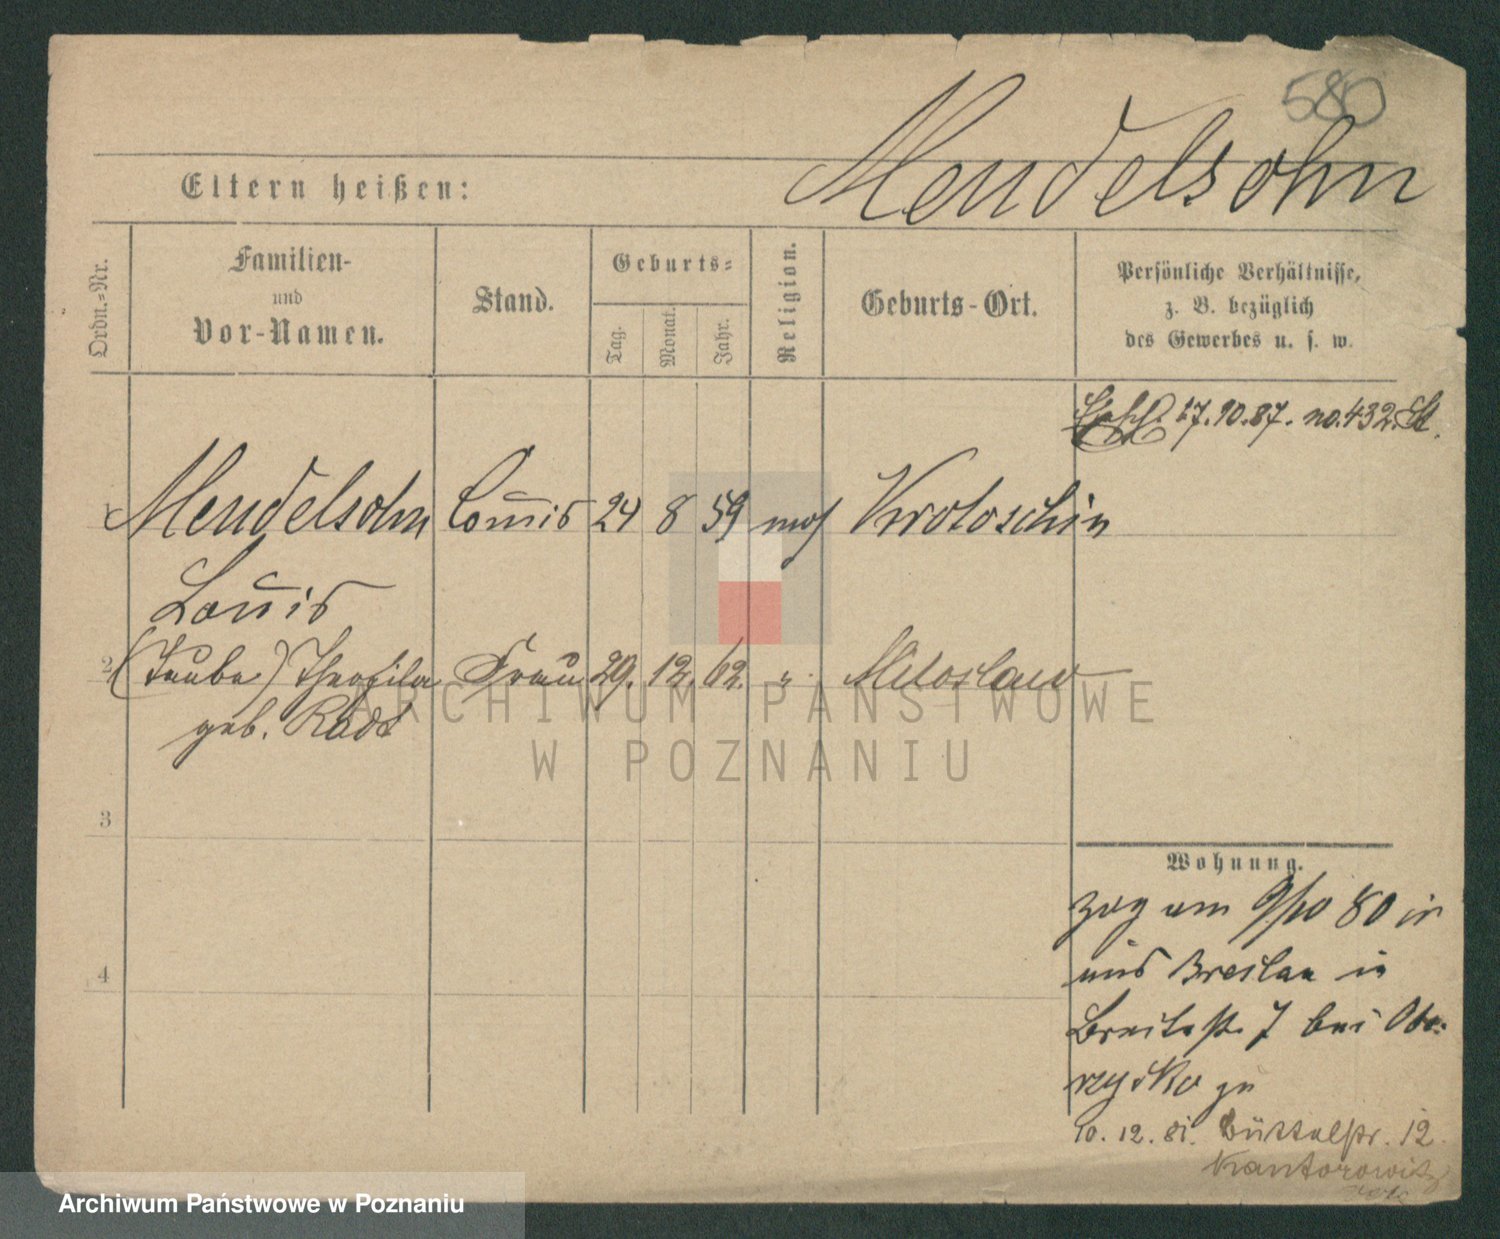 580
Mendelsohn
Eltern heißen:
Ordn.-Nr.
Familien-
und
Vor-Namen.
Stand.
Geburts-
Tag.
Monat.
Jahr.
Religion.
Geburts-Ort.
Persönliche Verhältnisse,
z. B. bezüglich
des Gewerbes u. s. w.
17.10.87. no. 432.
1 Mendelsohn Commis 24 8 59 mos Krotoschin
Louis
2 (Taube) Theophila Frau 29. 12. 62. " Miloslaw
geb. Radt
3
4
Wohnung.
zog am 9/10 80
aus Breslau in
Breitestr. 7 bei Obr-
zysko zu
10. 12. 81. Büttelstr. 12
Kantorowicz
ARCHIWUM PAŃSTWOWE
W POZNANIU
Archiwum Państwowe w Poznaniu